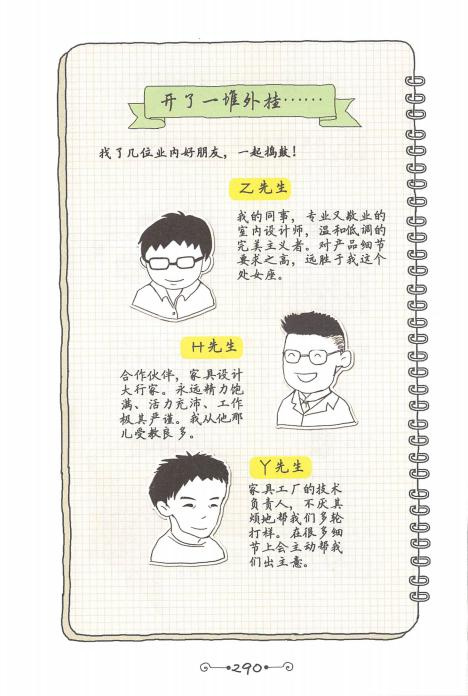 开了一堆外挂……
找了几位业内好朋友，一起捣鼓！
Z先生
我的同事，专业又敬业的
室内设计师，温和低调的
完美主义者。对产品细节
要求之高，远胜于我这个
处女座。
H先生
合作伙伴，家具设计
大行家。永远精力饱
满、活力充沛、工作
极其严谨。我从他那
儿受教良多。
Y先生
家具工厂的技术
负责人，不厌其
烦地帮我们多轮
打样。在很多细
节上会主动帮我
们出主意。
290